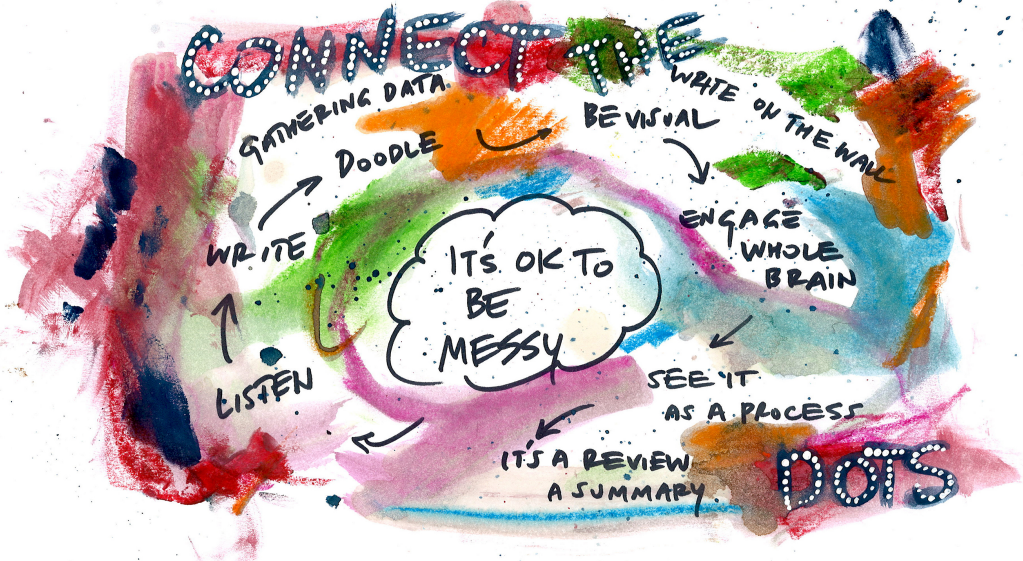 CONNECT THE
GATHERING DATA.
DOODLE
BE VISUAL
WRITE ON THE WALL
WRITE
ENGAGE
WHOLE
BRAIN
IT'S OK TO
BE
MESSY
LISTEN
SEE IT
AS A PROCESS
IT'S A REVIEW
A SUMMARY.
DOTS